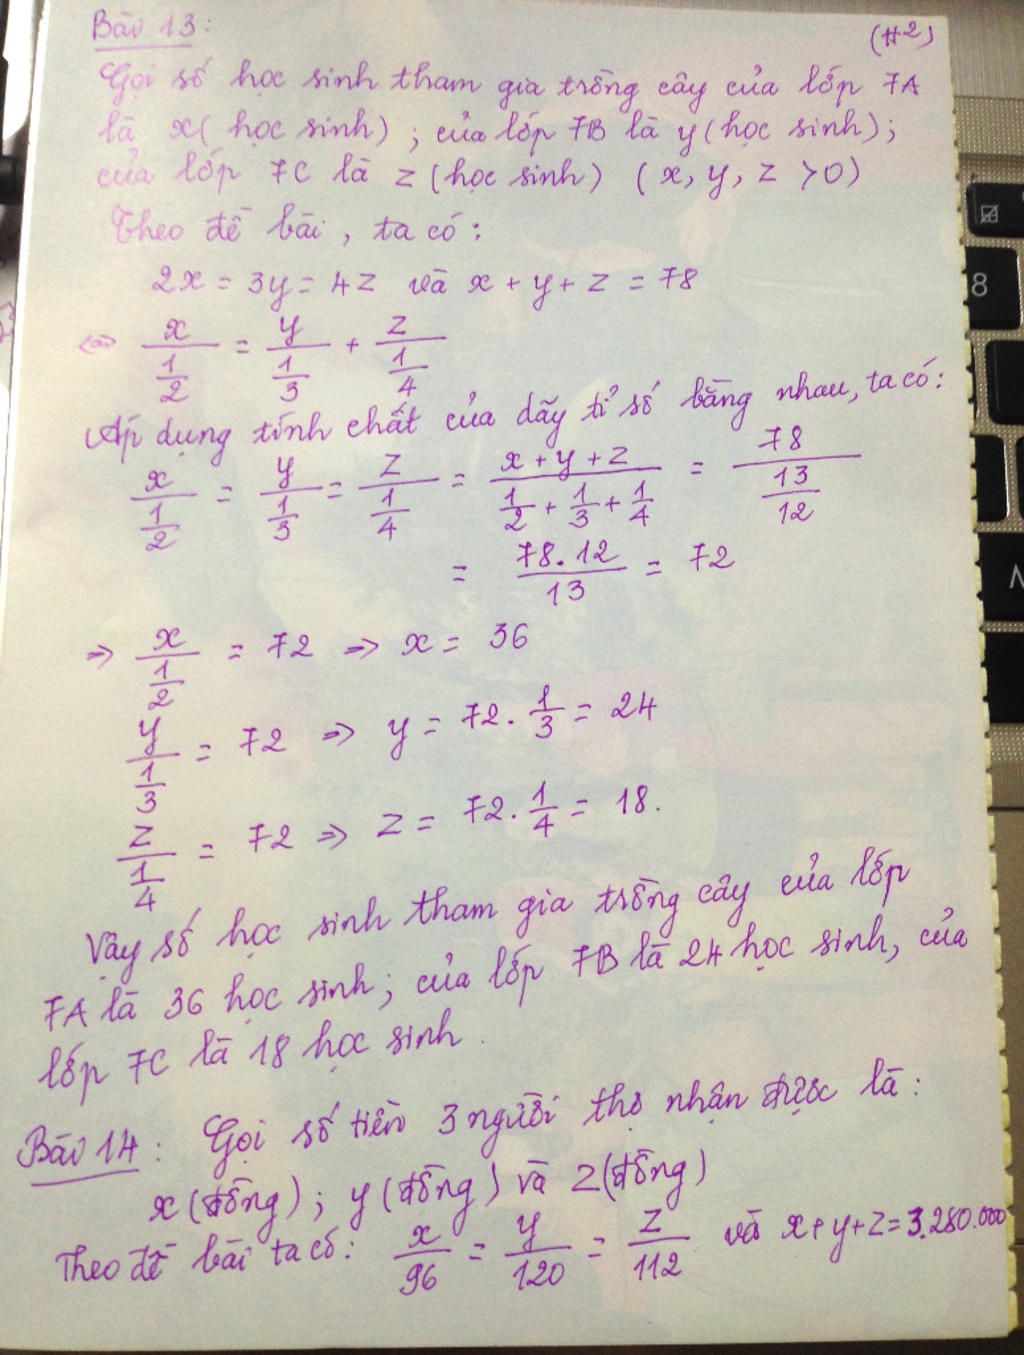 Bài 13:
(H2)
Gọi số học sinh tham gia trồng cây của lớp 7A
là x( học sinh) ; của lớp 7B là y (học sinh);
của lớp 7C là z (học sinh) (x, y, z >0)
Theo đề bài, ta có:
2x = 3y = 4z và x + y + z = 78
⇔ x/(1/2) = y/(1/3) + z/(1/4)
Áp dụng tính chất của dãy tỉ số bằng nhau, ta có:
x/(1/2) = y/(1/3) = z/(1/4) = (x+y+z)/(1/2 + 1/3 + 1/4) = 78/(13/12)
= (78.12)/13 = 72
⇒ x/(1/2) = 72 ⇒ x = 36
y/(1/3) = 72 ⇒ y = 72. 1/3 = 24
z/(1/4) = 72 ⇒ z = 72. 1/4 = 18.
Vậy số học sinh tham gia trồng cây của lớp
7A là 36 học sinh; của lớp 7B là 24 học sinh, của
lớp 7C là 18 học sinh.
Bài 14: Gọi số tiền 3 người thợ nhận được là:
x (đồng); y (đồng) và z (đồng)
Theo đề bài ta có: x/96 = y/120 = z/112 và x+y+z=3.280.000
8
N